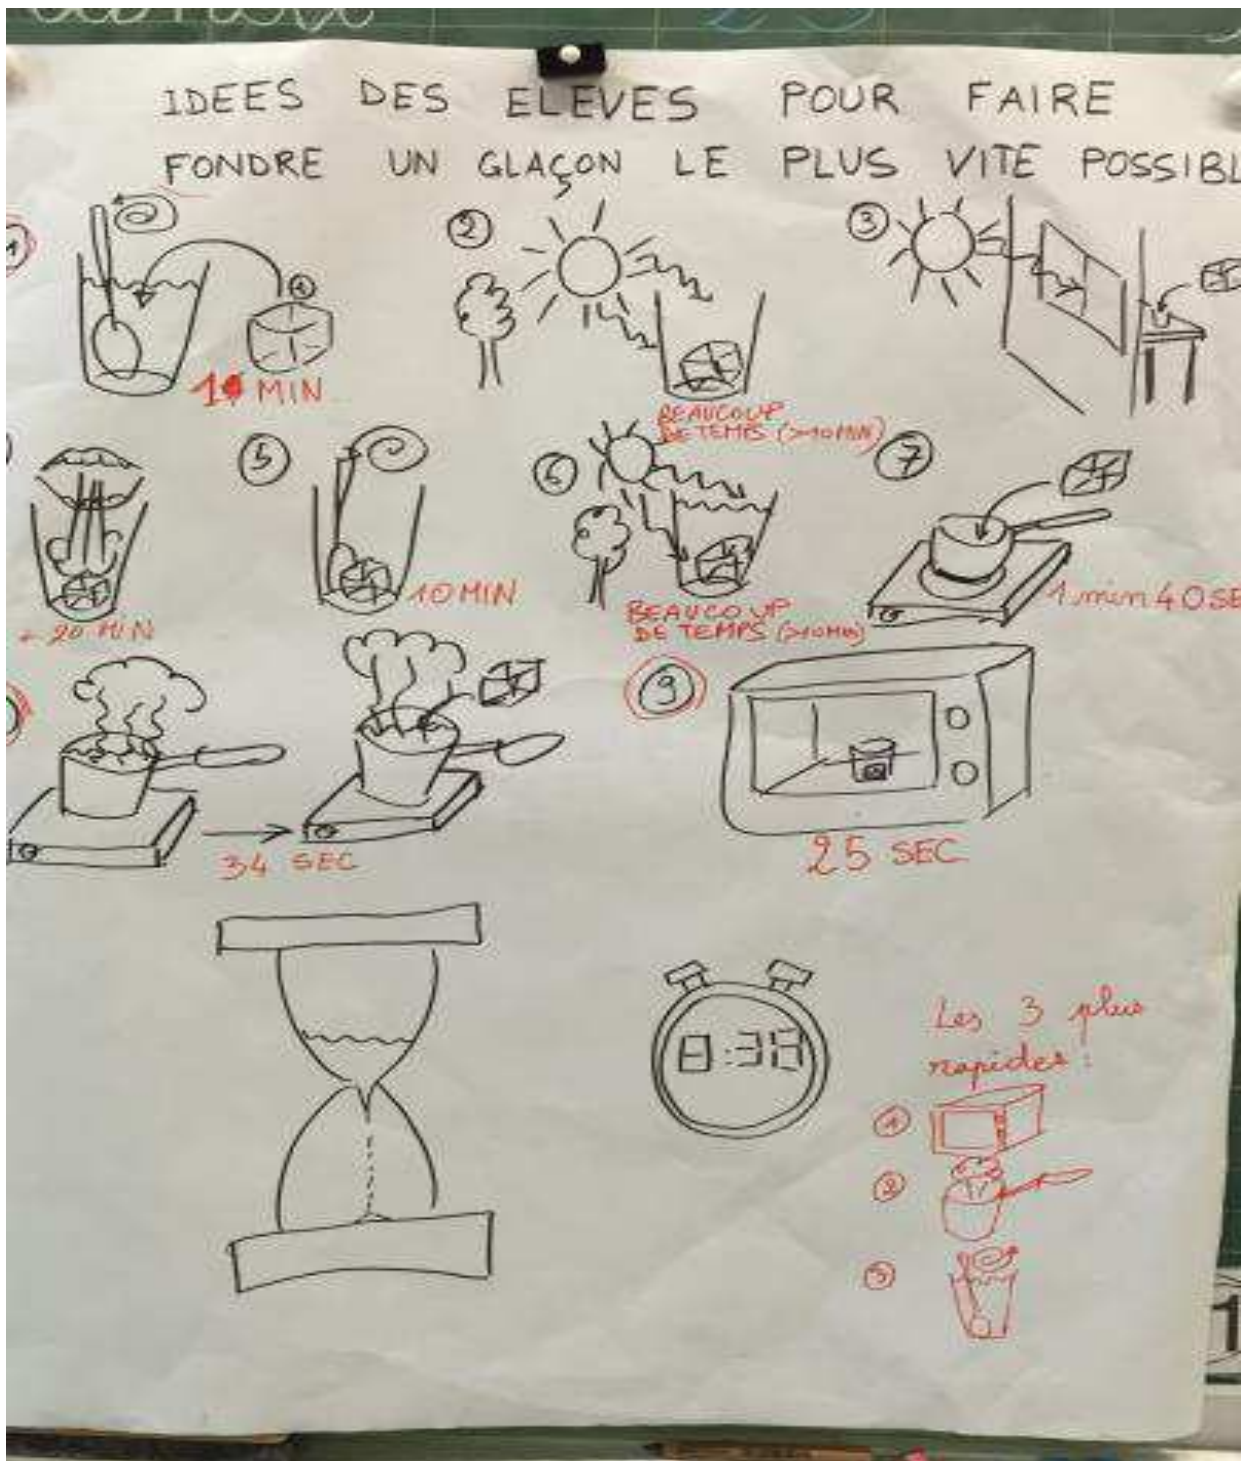 IDEES DES ELEVES POUR FAIRE
FONDRE UN GLAÇON LE PLUS VITE POSSIBL
1
2
3
MIN
BEAUCOUP
DE TEMPS (>10MIN)
5
6
7
20 MIN
10MIN
BEAUCOUP
DE TEMPS (>10MIN)
1 min 40 SE
9
34 SEC
25 SEC
Les 3 plus
rapides :
1
2
3
1